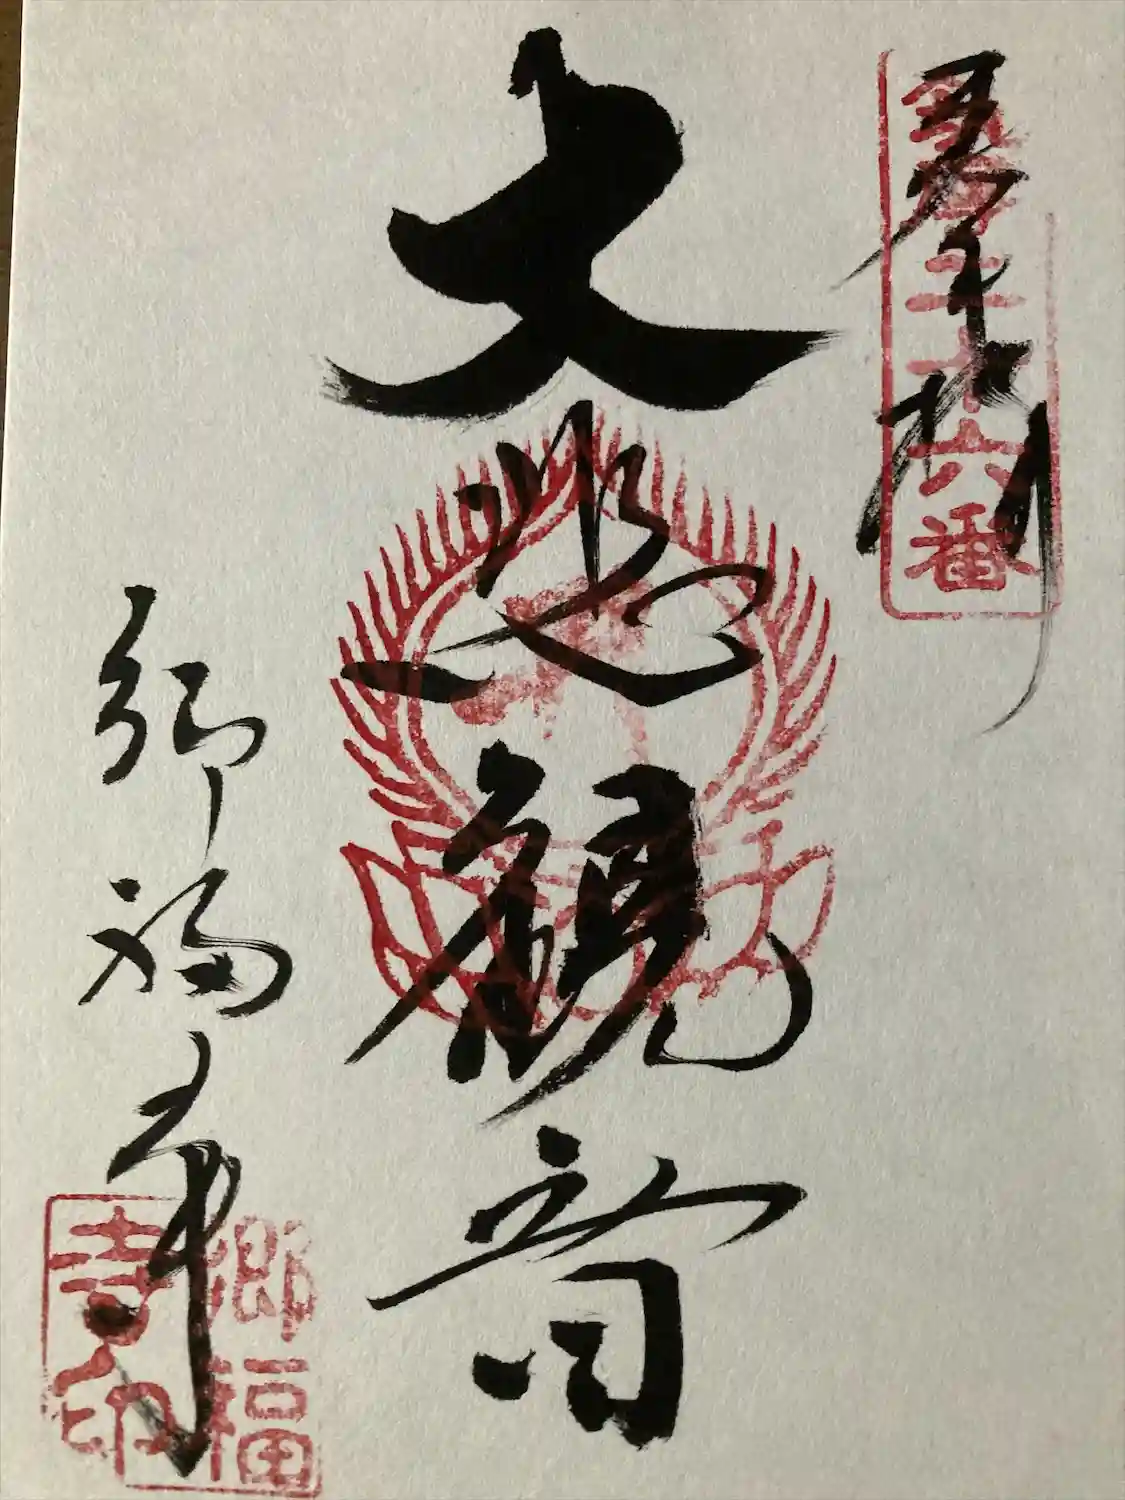 奉拝
十六番
大悲観音
郷福寺
郷福
寺印